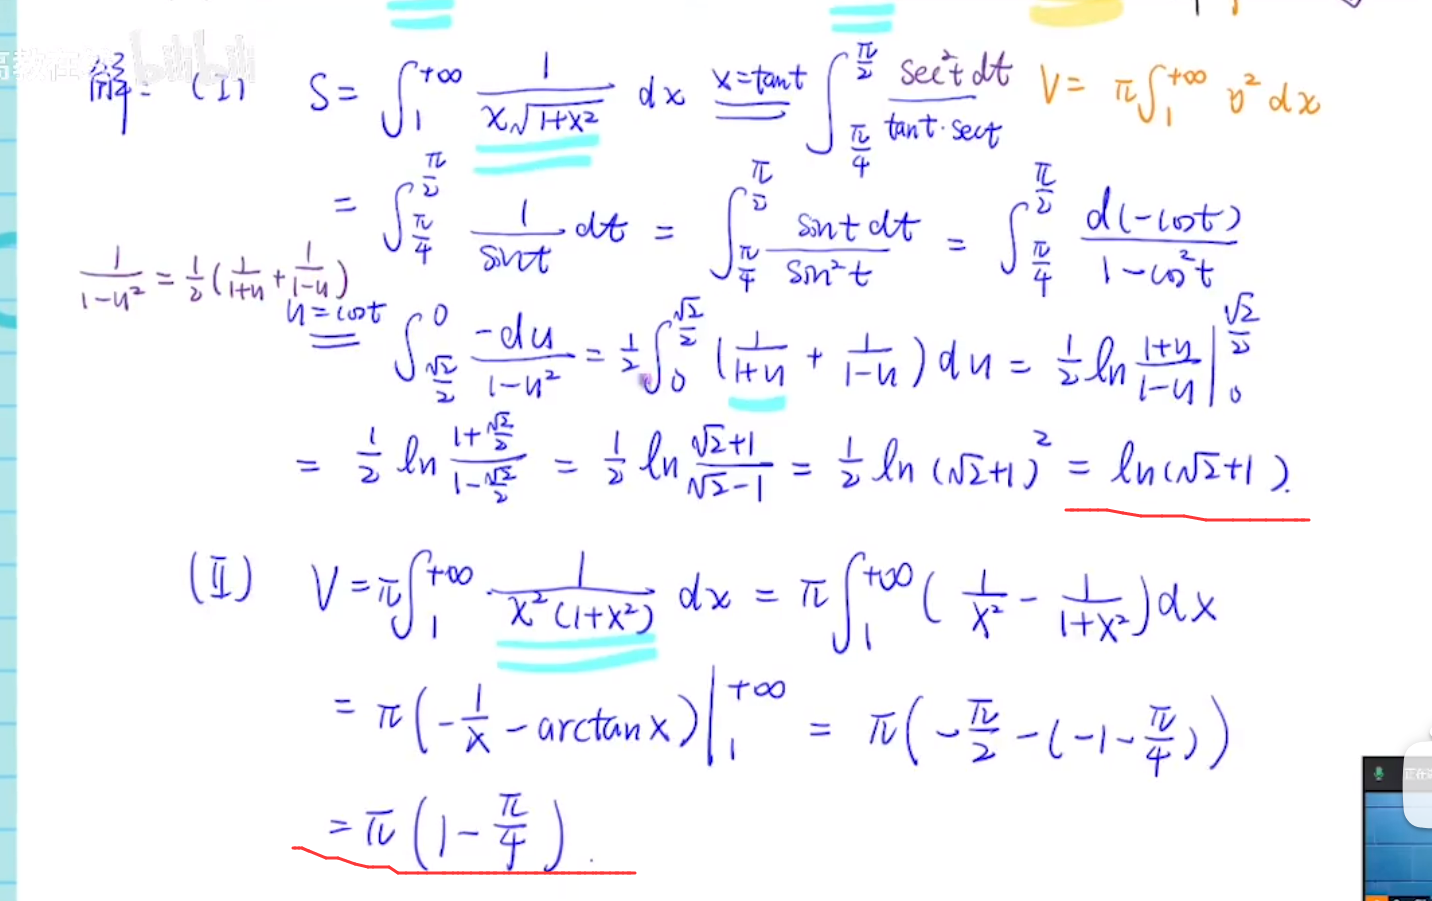 高教在线 bilibili
解: (I) S = ∫₁^{+∞} 1/(x√(1+x²)) dx x=tant ∫_{π/4}^{π/2} sec²t dt/(tant·sect) V = π∫₁^{+∞} y² dx
= ∫_{π/4}^{π/2} 1/sint dt = ∫_{π/4}^{π/2} sint dt/sin²t = ∫_{π/4}^{π/2} d(-cost)/(1-cos²t)
1/(1-u²) = 1/2(1/(1+u) + 1/(1-u))
u=cost ∫_{√2/2}^{0} -du/(1-u²) = 1/2 ∫₀^{√2/2} (1/(1+u) + 1/(1-u)) du = 1/2 ln (1+u)/(1-u) |₀^{√2/2}
= 1/2 ln (1+√2/2)/(1-√2/2) = 1/2 ln (√2+1)/(√2-1) = 1/2 ln(√2+1)² = ln(√2+1).
(II) V = π∫₁^{+∞} 1/(x²(1+x²)) dx = π∫₁^{+∞} (1/x² - 1/(1+x²)) dx
= π(-1/x - arctanx)|₁^{+∞} = π(-π/2 - (-1-π/4))
= π(1 - π/4).
正在